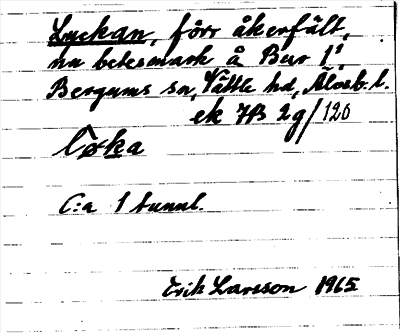 Luckan, förr åkerfält,
nu betesmark å Bur 1¹,
Bergums sn, Vättle hd, Älvsb. l.
ek 7B 2g/120
C:a 1 tunnl.
Erik Larsson 1965